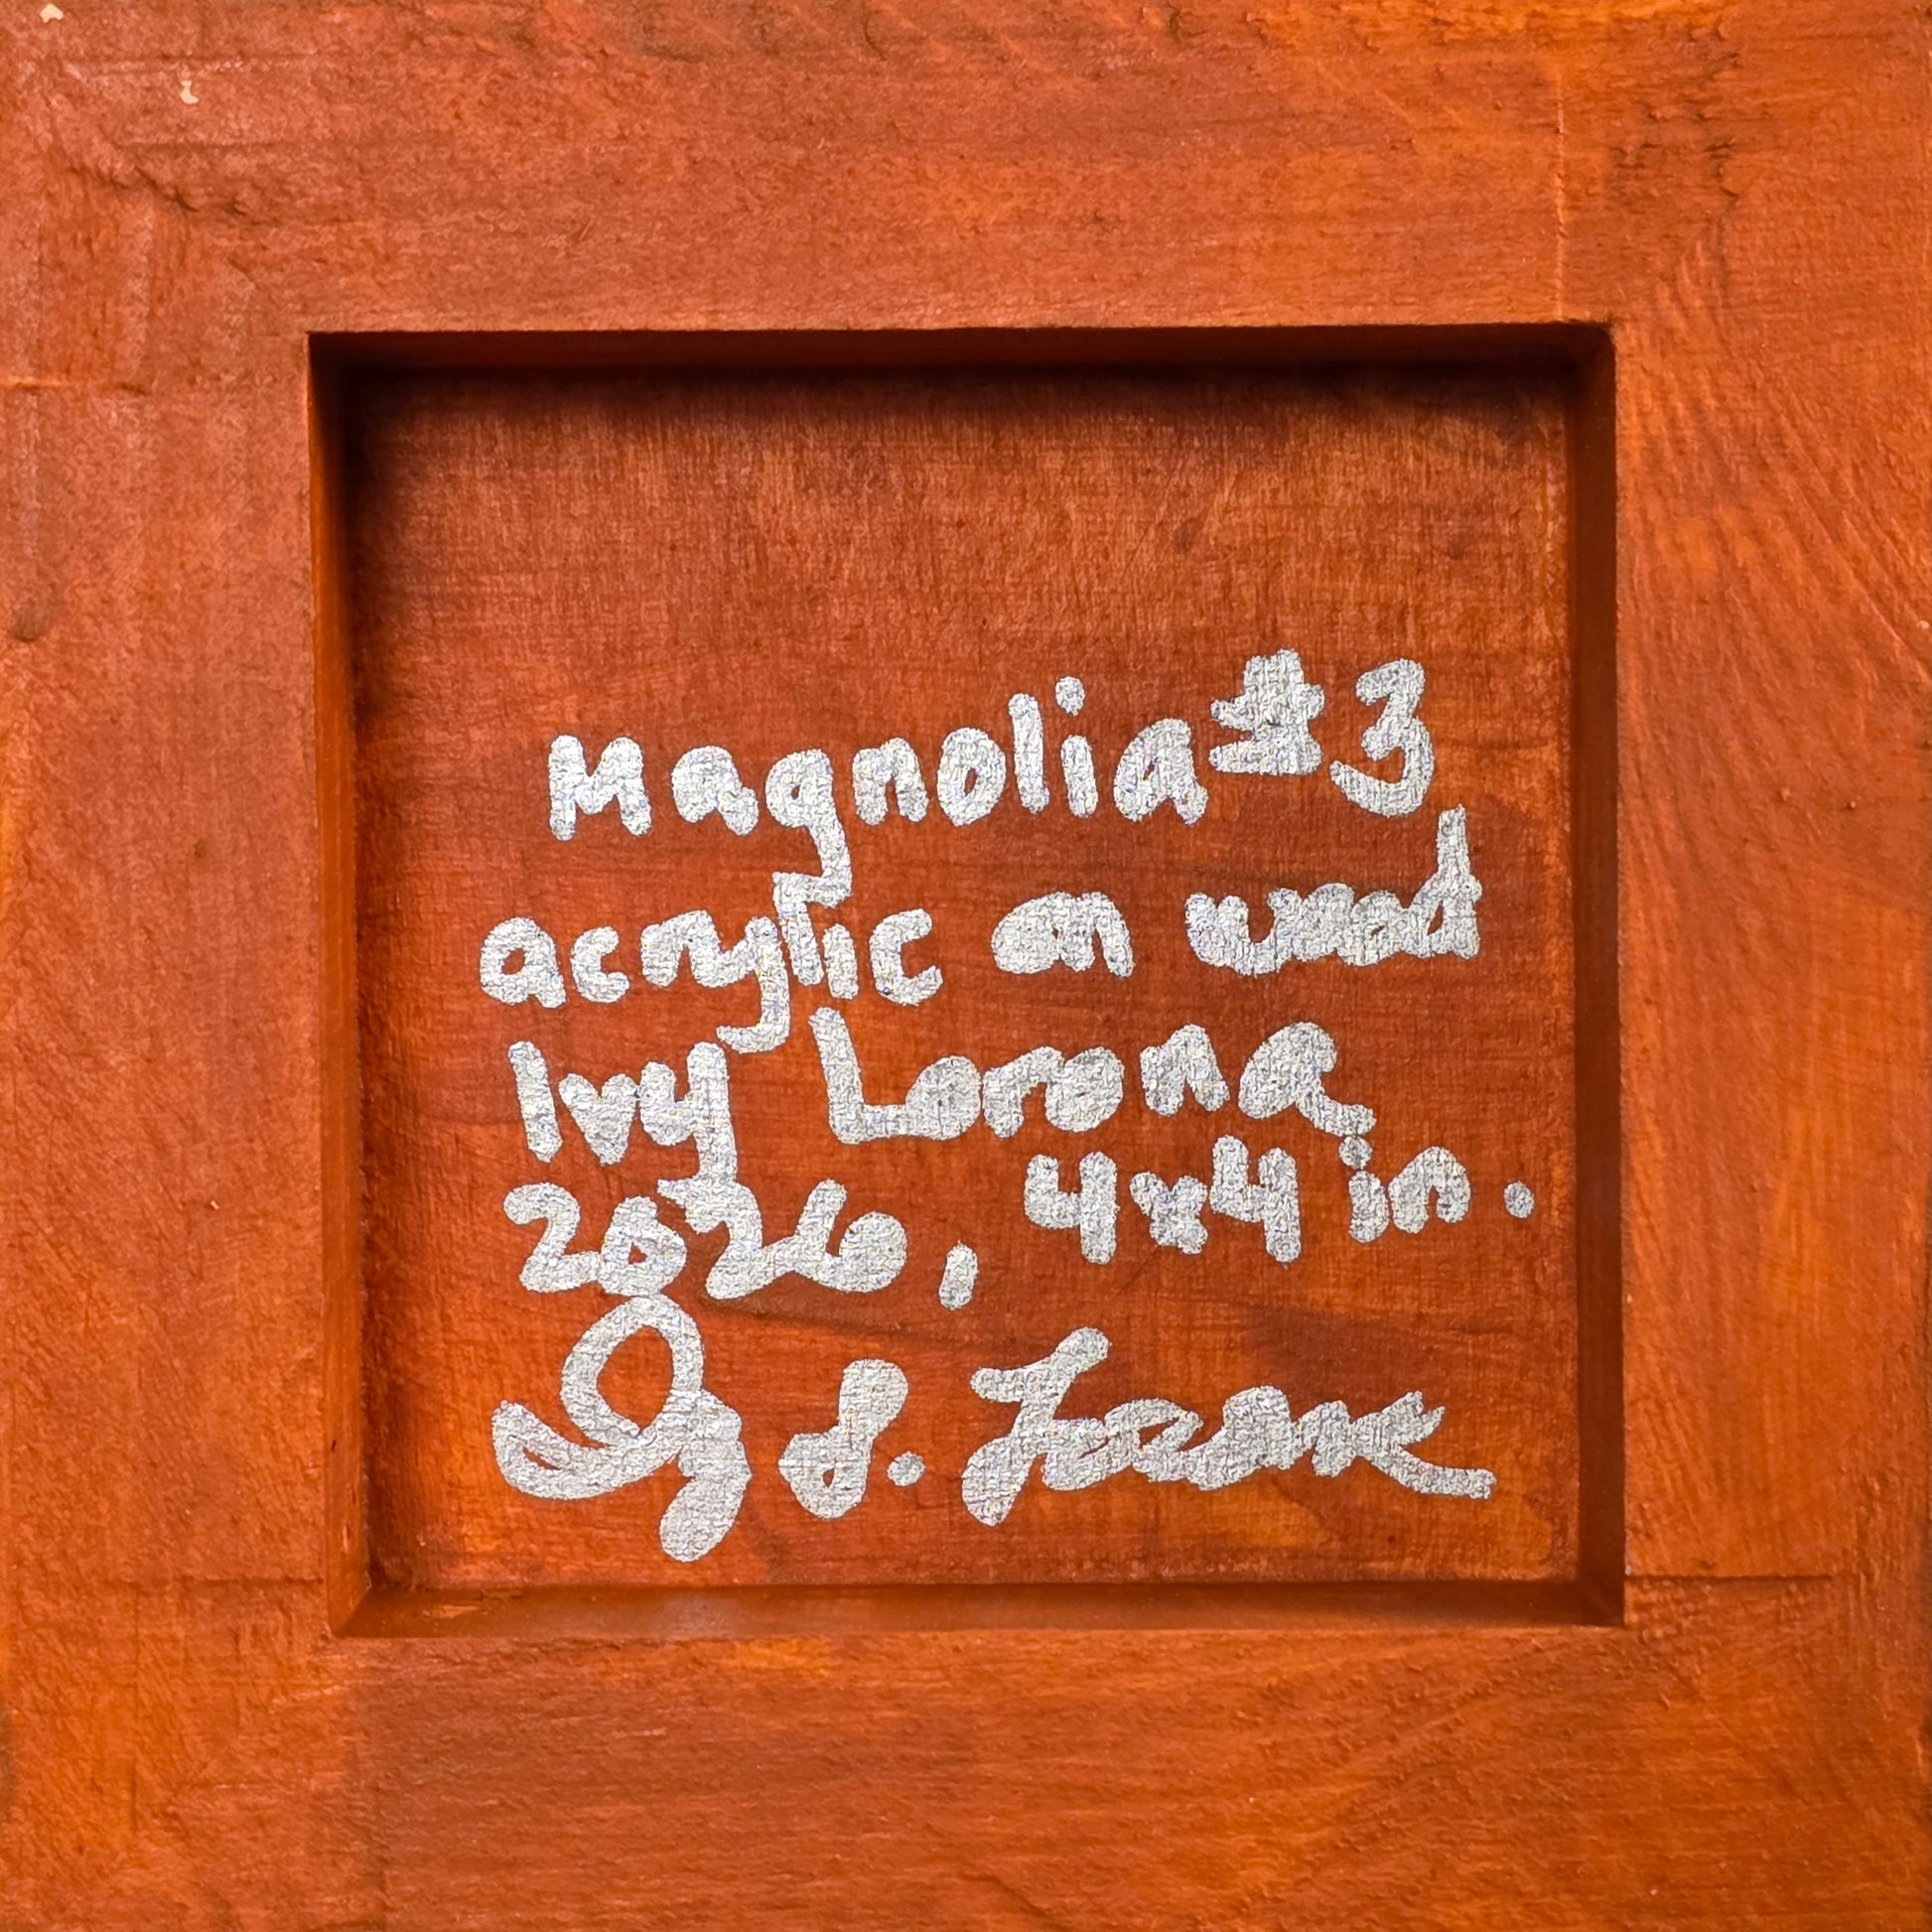 Magnolia #3
acrylic on wood
Ivy Lorona
2026, 4x4 in.